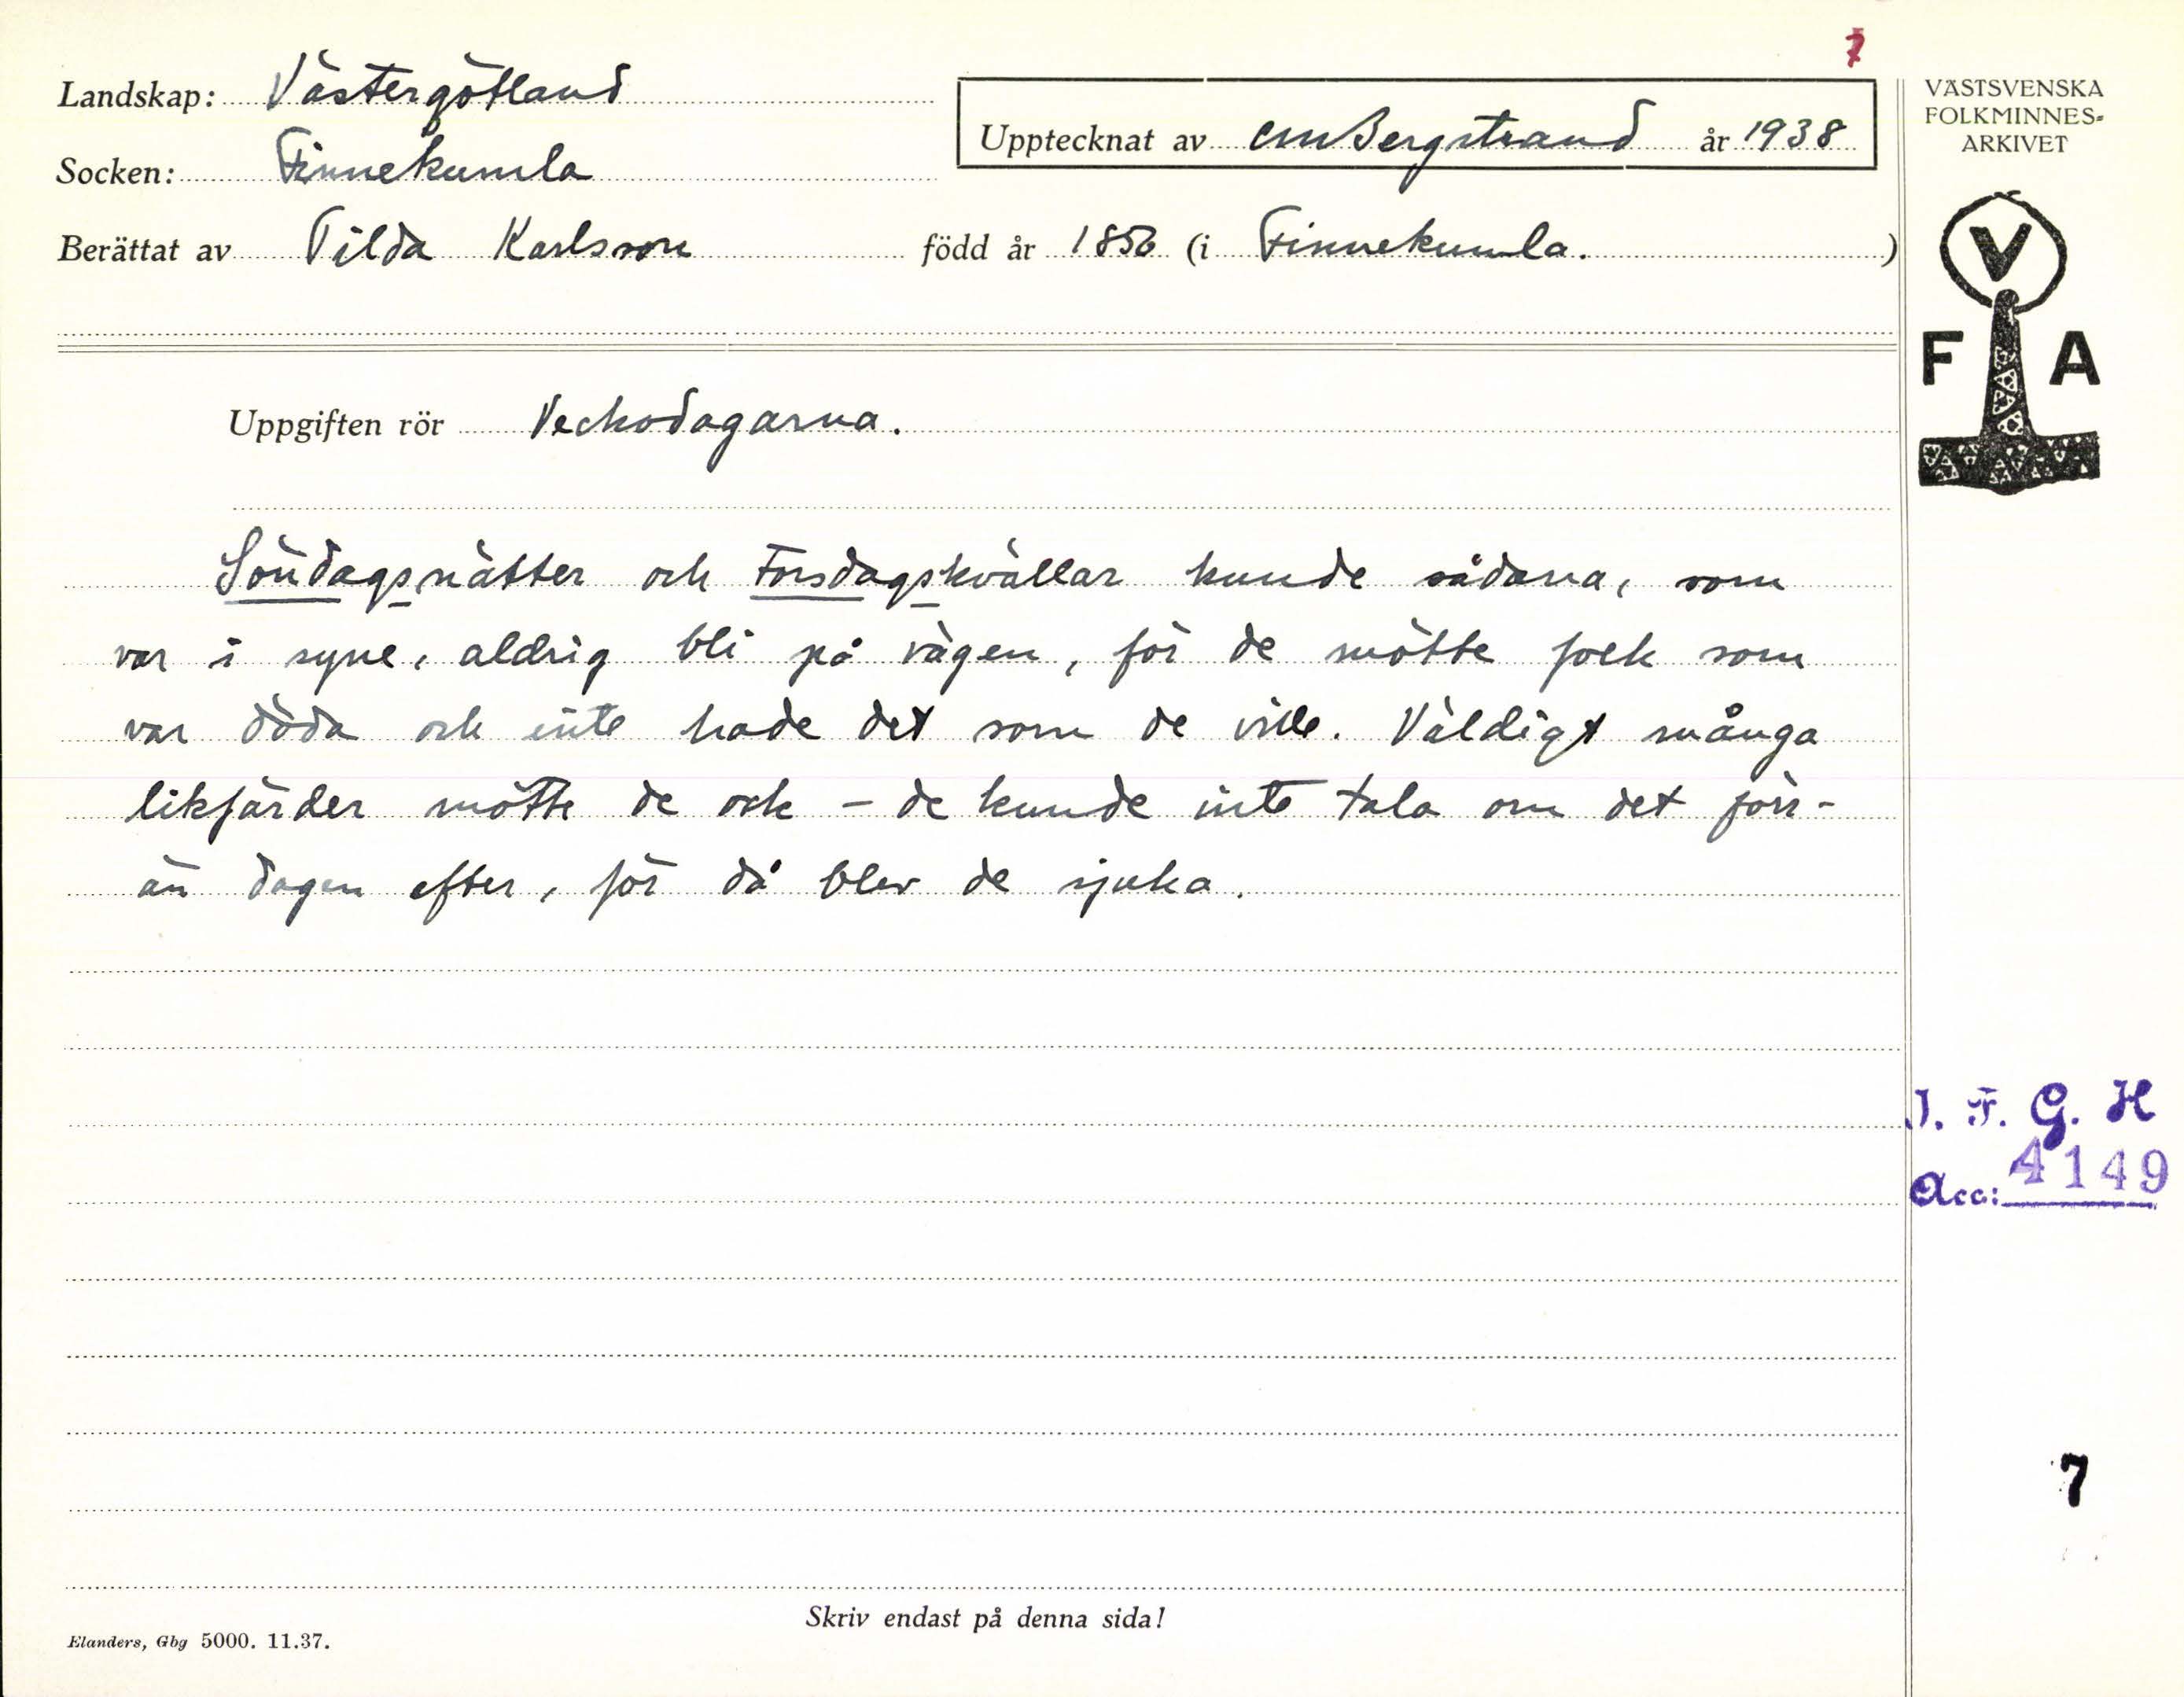 7
Landskap: Västergötland
Upptecknat av CM Bergstrand år 1938
Socken: Finnekumla
Berättat av Tilda Karlsson född år 1856 (i Finnekumla. )
VÄSTSVENSKA
FOLKMINNES-
ARKIVET
V
F A
Uppgiften rör Veckodagarna.
Söndagsnätter och torsdagskvällar kunde sådana, som
var i syne, aldrig bli på vägen, för de mötte folk som
var döda och inte hade det som de ville. Väldigt många
likfärder mötte de ock – de kunde inte tala om det förr-
än dagen efter, för då blev de sjuka.
I. F. G. H
Acc: 4149
7
Skriv endast på denna sida!
Elanders, Gbg 5000. 11.37.